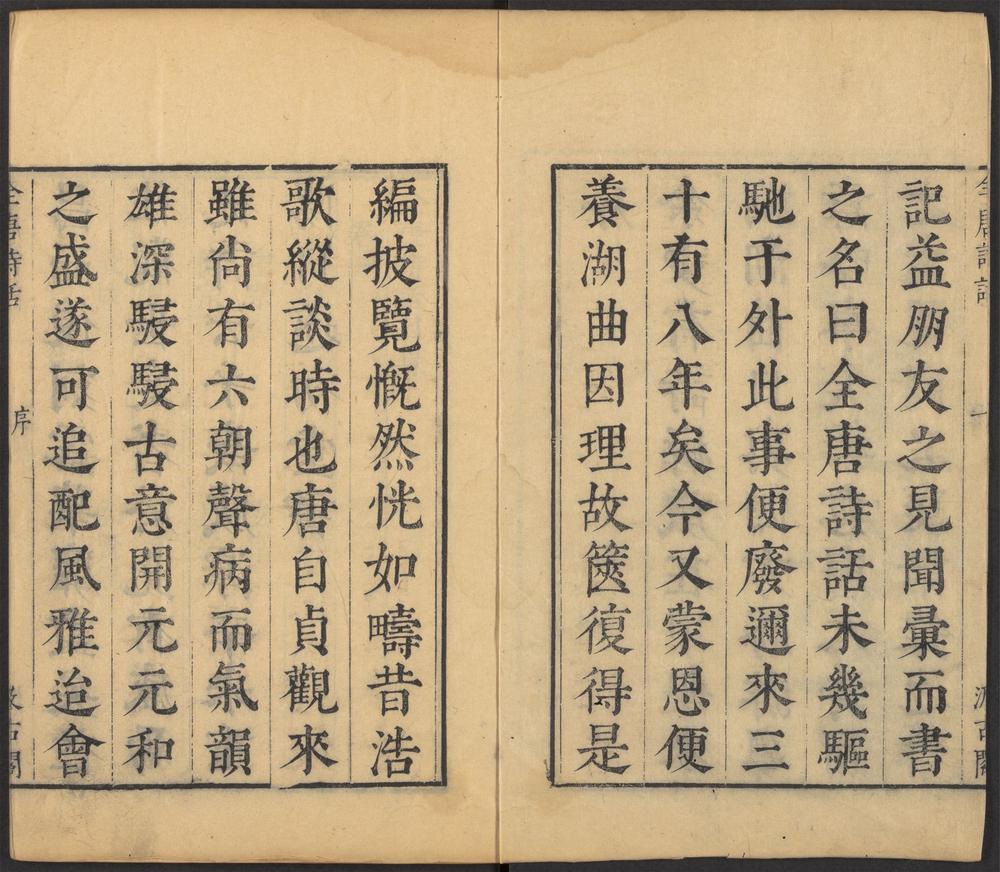 記益朋友之見聞彙而書
之名曰全唐詩話未幾驅
馳于外此事便廢邇來三
十有八年矣今又蒙恩便
養湖曲因理故篋復得是
編披覽慨然恍如疇昔浩
歌縱談時也唐自貞觀來
雖尙有六朝聲病而氣韻
雄深駸駸古意開元元和
之盛遂可追配風雅迨會
全唐詩話
序
汲古閣